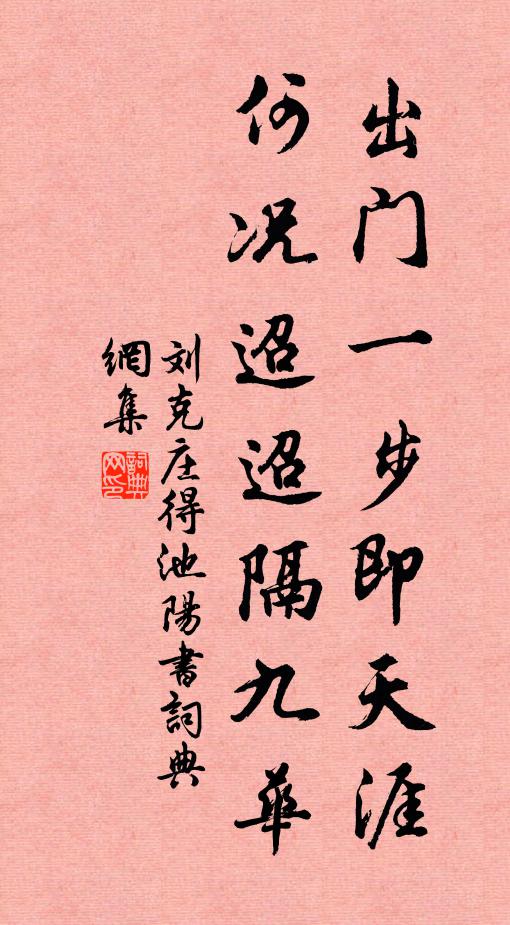 出门一步即天涯
何况迢迢隔九華
刘克庄得池陽書詞典
網集
詞典網印